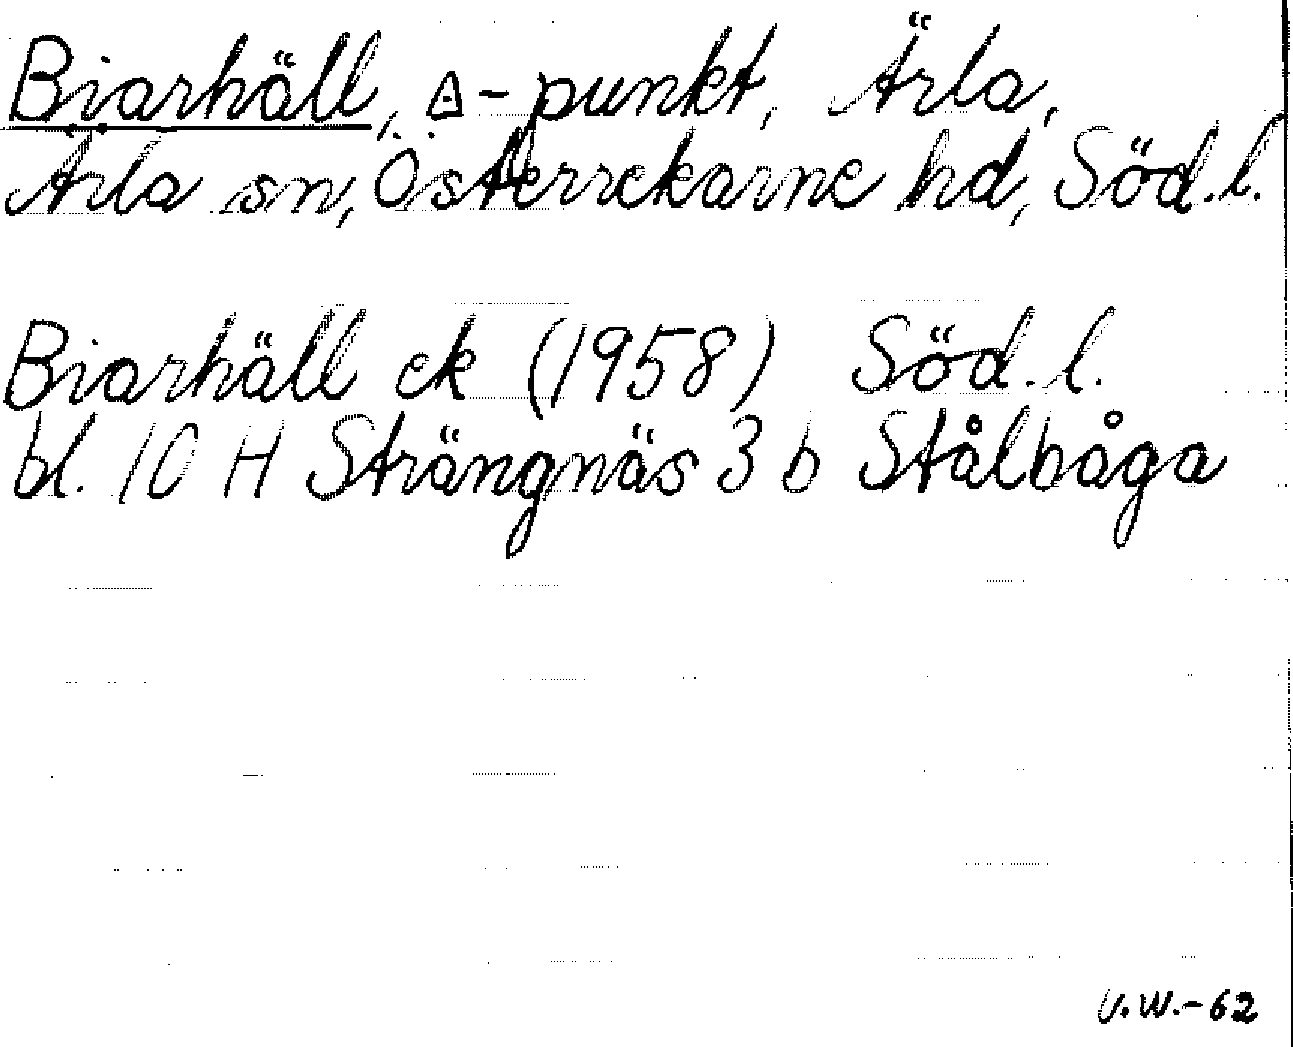 Biarhäll, △-punkt, Ärla,
Ärla sn, Österrekarne hd, Söd.l.
Biarhäll ek (1958) Söd.l.
bl. 10 H Strängnäs 3 b Stålbåga
V.W.-62